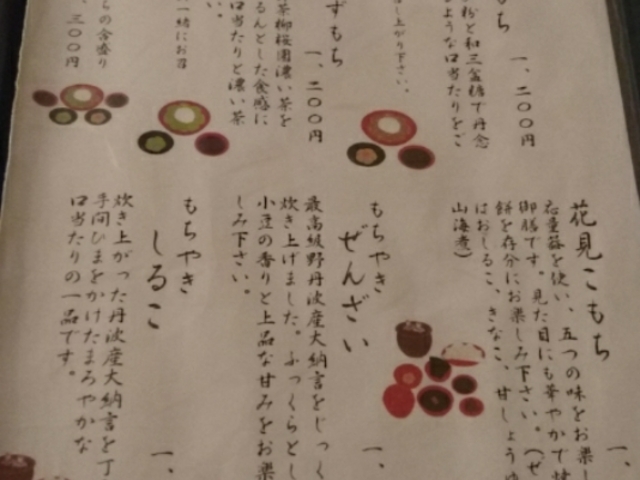 もち
粉と和三盆糖で丹念
ような口当たりをご
一、二〇〇円
上がり下さい。
ずもち
茶柳桜園濃い茶を
るんとした食感に
口当たりと濃い茶
い。
一、二〇〇円
らの含香り
一緒にお召
三〇〇円
花見こもち
応量器を使い、五つの味をお楽し
御膳です。見た目にも華やかで焼
餅を存分にお楽しみ下さい。(ぜ
はおしるこ、きなこ、甘しょうゆ
山海煮)
一、
もちやき
ぜんざい
最高級野丹波産大納言をじっく
炊き上げました。ふっくらとし
小豆の香りと上品な甘みをお楽
しみ下さい。
一、
もちやき
しるこ
炊き上がった丹波産大納言を丁
手間ひまをかけたまろやかな
口当たりの一品です。
一、